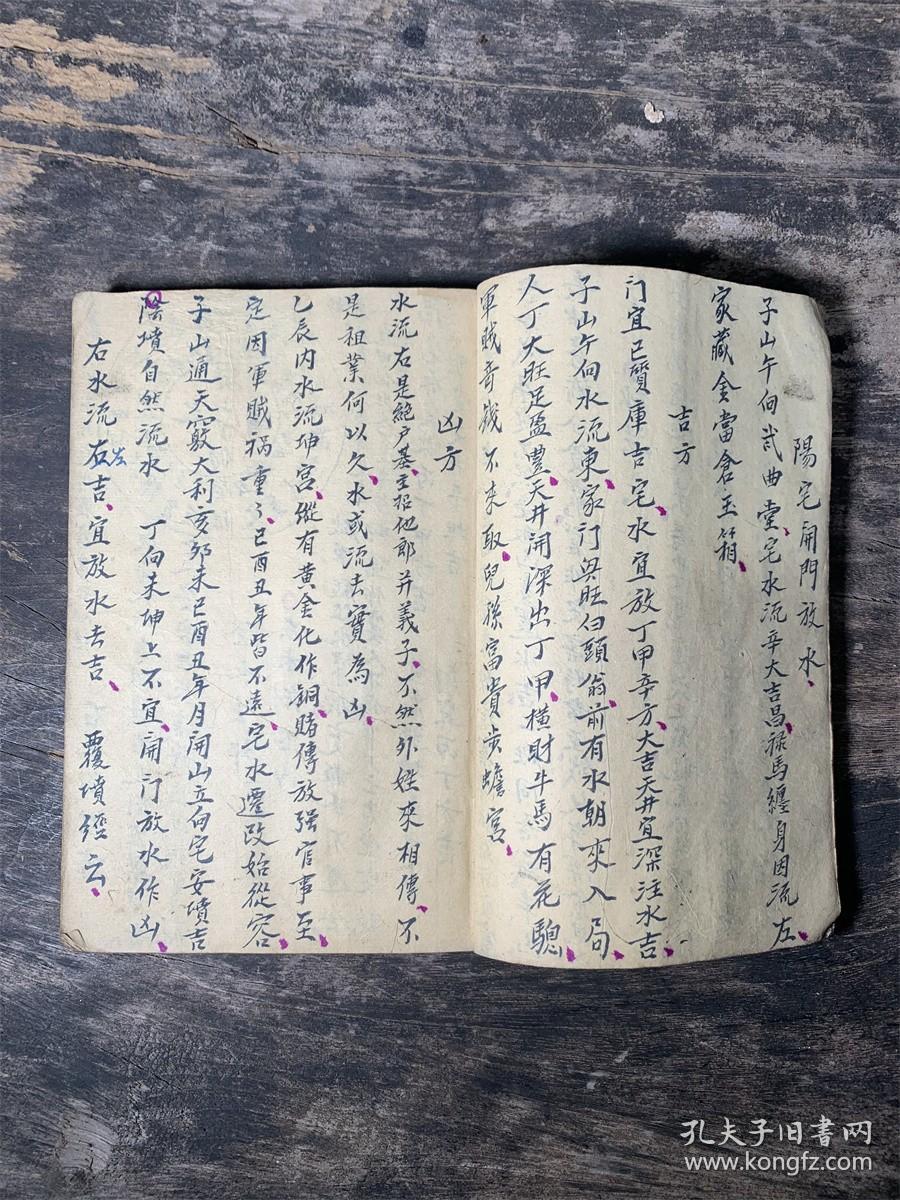 陽宅開門放水
子山午向貳曲堂宅水流辛大吉昌祿馬纏身因流左
家藏金當倉玉箱
吉方
门宜巳質庫吉宅水宜放丁甲辛方大吉天井宜深注水吉
子山午向水流東家门興旺白頭翁前有水朝來入局
人丁大旺足盈豐天井開深出丁甲橫財牛馬有花驄
軍賊音战不來取兒孫富貴步蟾宮
凶方
水流右是絕户基主招他郎并義子不然外姓來相傳不
是祖業何以久水或流去實為凶
乙辰丙水流坤宮縱有黄金化作銅賭傳放强官事至
定因軍賊祸重〻巳酉丑年皆不遠宅水遷改始從容
子山通天竅大利亥卯未巳酉丑年月開山立向宅安墳吉
陰墳自然流水 丁向未坤上不宜開门放水作凶
右水流右左吉宜放水去吉 覆墳經云
孔夫子旧书网
www.kongfz.com